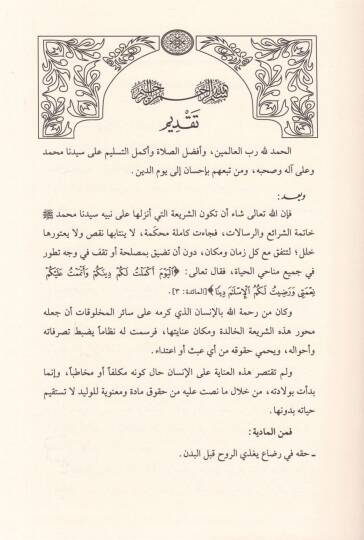 بسم الله الرحمن الرحيم
تقديم
الحمد لله رب العالمين، وأفضل الصلاة وأكمل التسليم على سيدنا محمد
وعلى آله وصحبه، ومن تبعهم بإحسان إلى يوم الدين.
وبعد:
فإن الله تعالى شاء أن تكون الشريعة التي أنزلها على نبيه سيدنا محمد ﷺ
خاتمة الشرائع والرسالات، فجاءت كاملة محكَمة، لا ينتابها نقص ولا يعتورها
خلل؛ لتتفق مع كل زمان ومكان، دون أن تضيق بمصلحة أو تقف في وجه تطور
في جميع مناحي الحياة، فقال تعالى: ﴿ٱلْيَوْمَ أَكْمَلْتُ لَكُمْ دِينَكُمْ وَأَتْمَمْتُ عَلَيْكُمْ
نِعْمَتِى وَرَضِيتُ لَكُمُ ٱلْإِسْلَٰمَ دِينًا﴾ [المائدة: ٣].
وكان من رحمة الله بالإنسان الذي كرمه على سائر المخلوقات أن جعله
محور هذه الشريعة الخالدة ومكان عنايتها، فرسمت له نظاماً يضبط تصرفاته
وأحواله، ويحمي حقوقه من أي عبث أو اعتداء.
ولم تقتصر هذه العناية على الإنسان حال كونه مكلفاً أو مخاطباً، وإنما
بدأت بولادته، من خلال ما نصت عليه من حقوق مادة ومعنوية للوليد لا تستقيم
حياته بدونها.
فمن المادية:
ـ حقه في رضاع يغذي الروح قبل البدن.